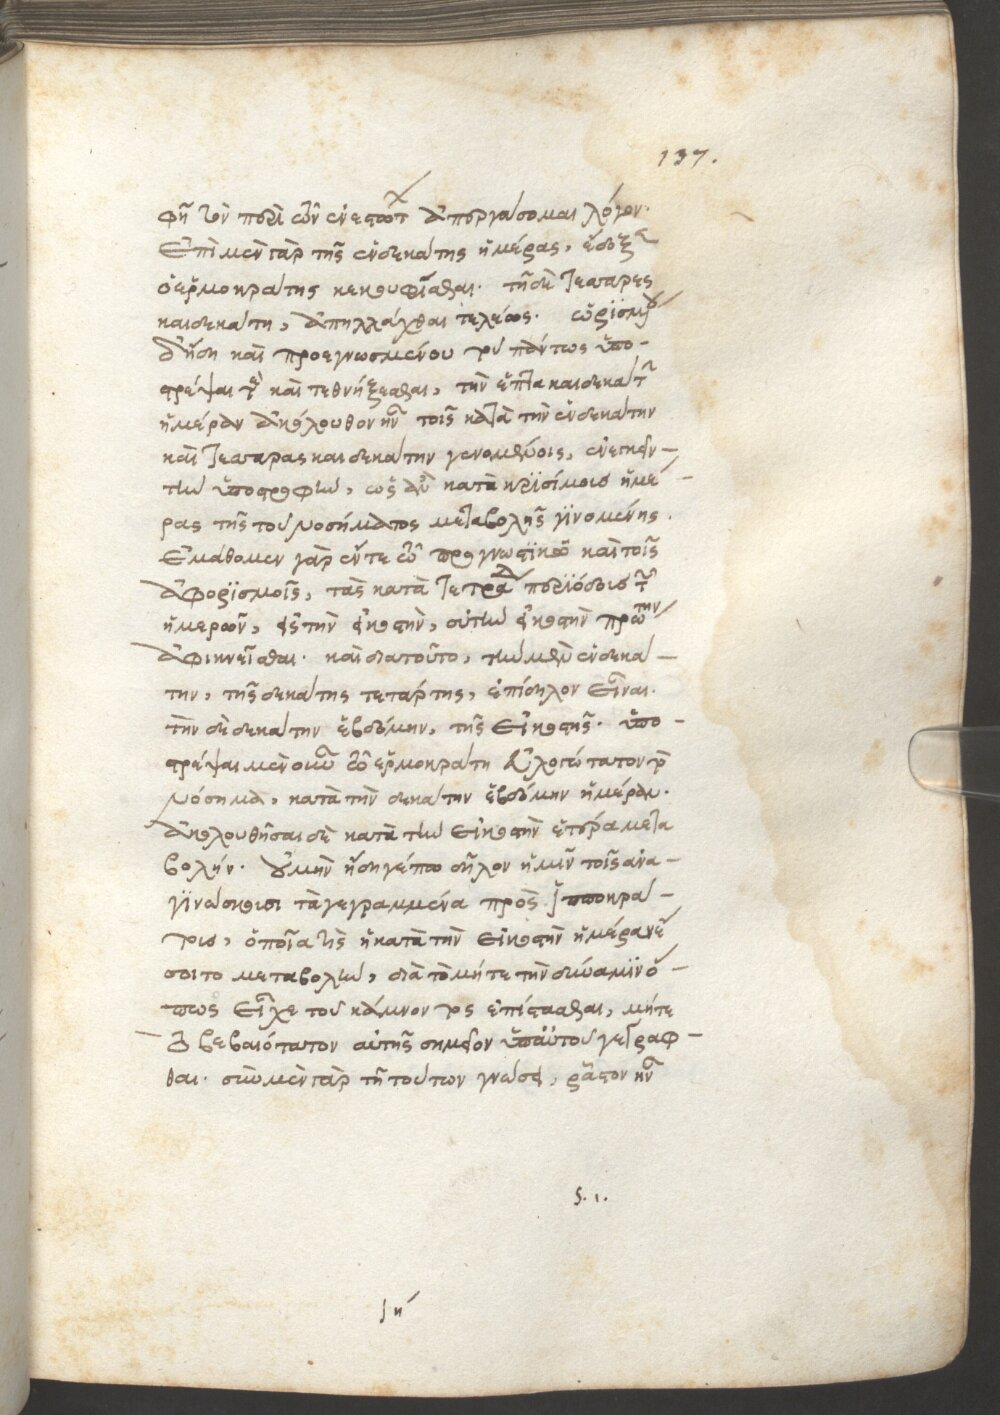 137.
φῆ τὸν περὶ τῶν ἐνεστώτ(ων) ἀπεργάσομαι λόγον·
ἐπὶ μὲν γὰρ τῆς ἑνδεκάτης ἡμέρας, ἔδοξε
ὁ ἑρμοκράτης κεκουφίσθαι· τῇ δὲ τεσσαρες
καιδεκάτη, ἀπηλλάχθαι τελέως· ὡρισμένου
δ' ἤδη καὶ προεγνωσμένου τοῦ πάντως ὑπο-
στρέψαι τε καὶ τεθνήξεσθαι, τὴν ἑπτακαιδεκάτην
ἡμέραν ἀκόλουθον ἦν τοῖς κατὰ τὴν ἑνδεκάτην
καὶ τεσσαρασκαιδεκάτην γενομένοις, ἐνεγκεῖν
τὴν ὑποστροφὴν, ὡς ἂν κατὰ κρισίμους ἡμέ-
ρας τῆς τοῦ νοσήματος μεταβολῆς γινομένης.
ἐμάθομεν γὰρ ἔν τε τῷ προγνωστικῷ καὶ τοῖς
ἀφορισμοῖς, τὰς κατὰ τετράδα περιόδους τῶν
ἡμερῶν, εἰς τὴν εἰκοστὴν, οὔσην εἰκοστὴν πρώτην
ἀφικνεῖσθαι· καὶ διατοῦτο, τὴν μὲν ἑνδεκά-
την, τῆς δεκάτης τετάρτης, ἐπίδηλον εἶναι.
τὴν δὲ δεκάτην ἑβδόμην, τῆς εἰκοστῆς· ὑπο-
στρέψαι μὲν οὖν τῷ ἑρμοκράτη εὐλογώτατον τὸ
νόσημα, κατὰ τὴν δεκάτην ἑβδόμην ἡμέραν·
ἀκολουθῆσαι δὲ κατὰ τὴν εἰκοστὴν ἑτέρα μετα
βολήν· οὐ μὴν ἤδη γέ πω δῆλον ἡμῖν τοῖς ἀνα-
γινώσκουσι τὰ γεγραμμένα πρὸς ἱπποκρά-
τους, ὁποία τις ἡ κατὰ τὴν εἰκοστὴν ἡμέραν ἔ
σοιτο μεταβολὴν, διὰ τὸ μήτε τὴν δύναμιν ὅ-
πως εἶχε τοῦ κάμνοντος ἐπίστασθαι, μήτε
τὸ βεβαιότατον αὐτῆς σημεῖον ὑπ' αὐτοῦ γεγράφ-
θαι· σὺν μὲν γὰρ τῇ τούτων γνώσει, ῥᾷστον ἦν
s. 1.